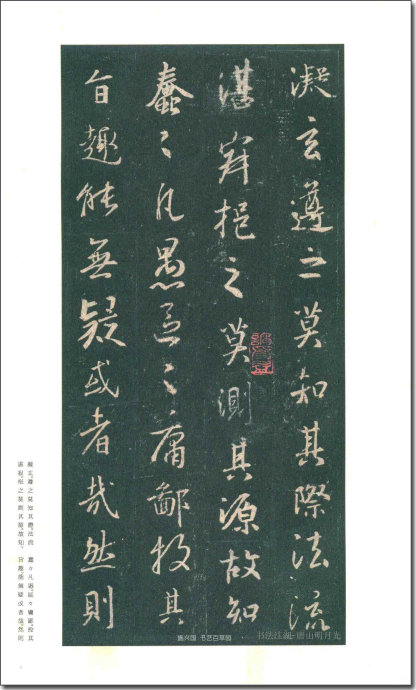 凝玄遵之莫知其際法流
湛寂挹之莫測其源故知
蠢〻凡愚區〻庸鄙投其
旨趣能無疑或者哉然則
凝玄遵之莫知其際法流
湛寂挹之莫測其源故知
蠢々凡愚區々庸鄙投其
旨趣能無疑或者哉然則
书法江湖-唐山明月光